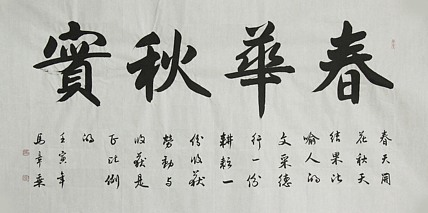 春華秋實
春天開
花秋天
结果比
喻人的
文采德
行一份
耕耘一
份收获
勞動与
收获是
正比例
的
壬寅年
馬